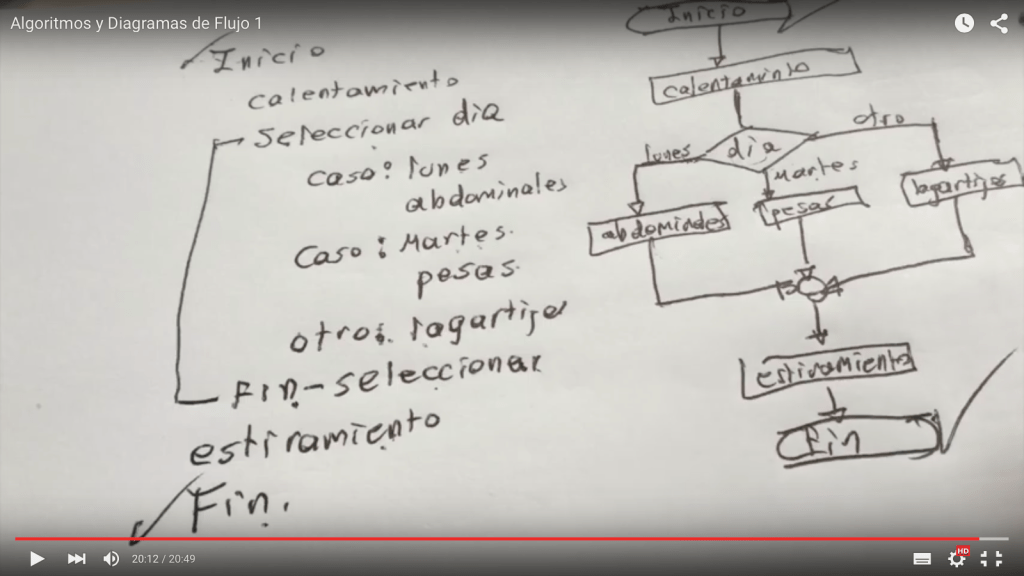 Algoritmos y Diagramas de Flujo 1
Inicio
calentamiento
Seleccionar dia
caso: lunes
abdominales
Caso: Martes.
pesas.
otros: lagartijas
Fin-seleccionar
estiramiento
Fin.
Inicio
calentaminto
dia
lunes
Martes
otro
abdominales
pesas
lagartijas
estiramiento
Fin
20:12 / 20:49
HD